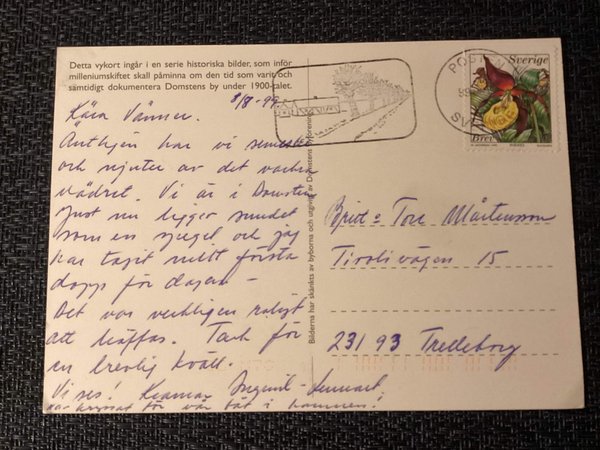 Detta vykort ingår i en serie historiska bilder, som inför
milleniumskiftet skall påminna om den tid som varit och
samtidigt dokumentera Domstens by under 1900-talet.
8/8-99
Kära Vänner.
Äntligen har vi semester
och njuter av det vackra
vädret. Vi är i Domsten
Just nu ligger sundet
som en spegel och jag
har tagit mitt första
dopp för dagen –
Det var verkligen roligt
att träffas. Tack för
en trevlig kväll.
Vi ses! Kramar Ingemil - Lennart
för vår båt i hamnen!
Bilderna har skänkts av byborna och utgivits av Domstens byförening
POSTEN
Sverige
Brev
Britt o Tore Mårtensson
Tirolivägen 15
231 93 Trelleborg